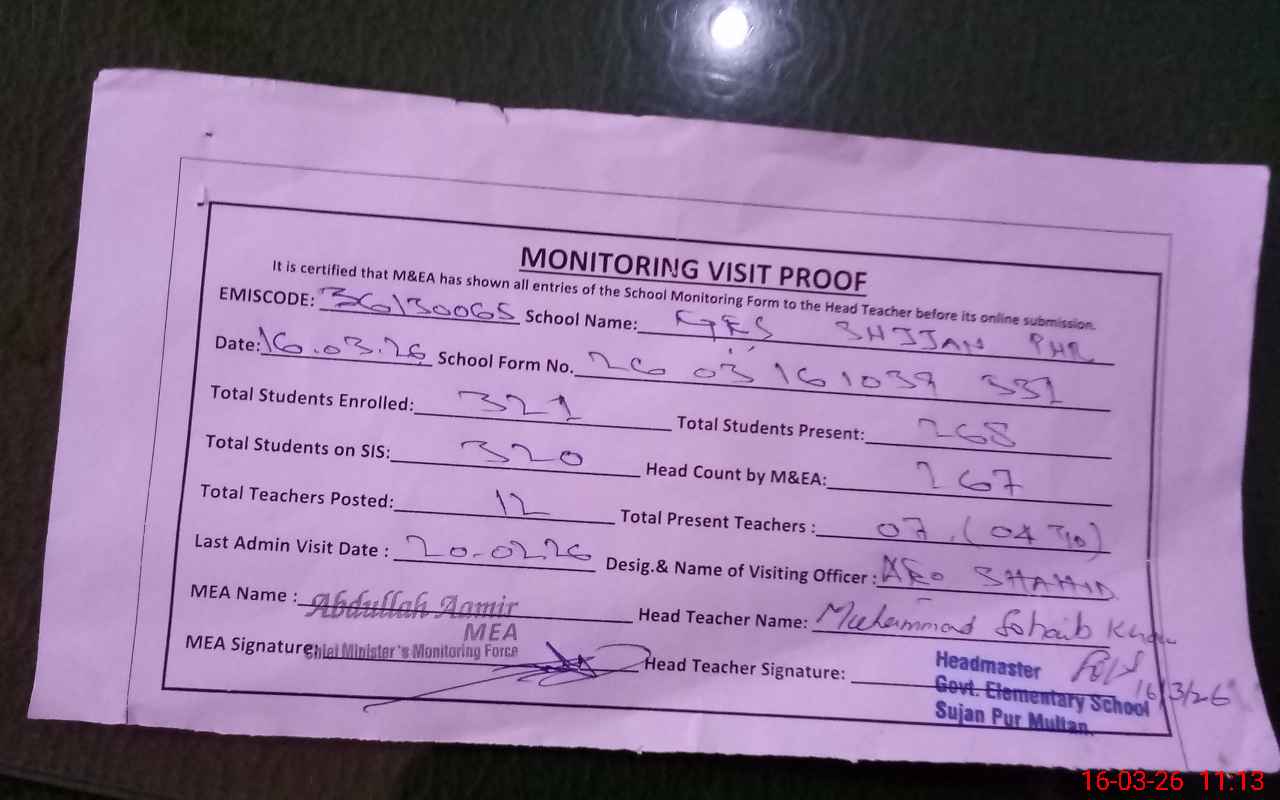 MONITORING VISIT PROOF
It is certified that M&EA has shown all entries of the School Monitoring Form to the Head Teacher before its online submission.
EMISCODE: 36130065 School Name: GES SHJJAN PHR
Date: 16.03.26 School Form No. 26 03 161039 331
Total Students Enrolled: 321 Total Students Present: 268
Total Students on SIS: 320 Head Count by M&EA: 267
Total Teachers Posted: 12 Total Present Teachers : 07 (04
Last Admin Visit Date : 20.02.26 Desig.& Name of Visiting Officer : SHAHID
MEA Name : Abdullah Aamir Head Teacher Name: Muhammad Sohaib Khan
MEA
MEA Signature: Chief Minister's Monitoring Force Head Teacher Signature:
Headmaster
Govt. Elementary School
Sujan Pur Multan.
16/3/26
16-03-26 11:13